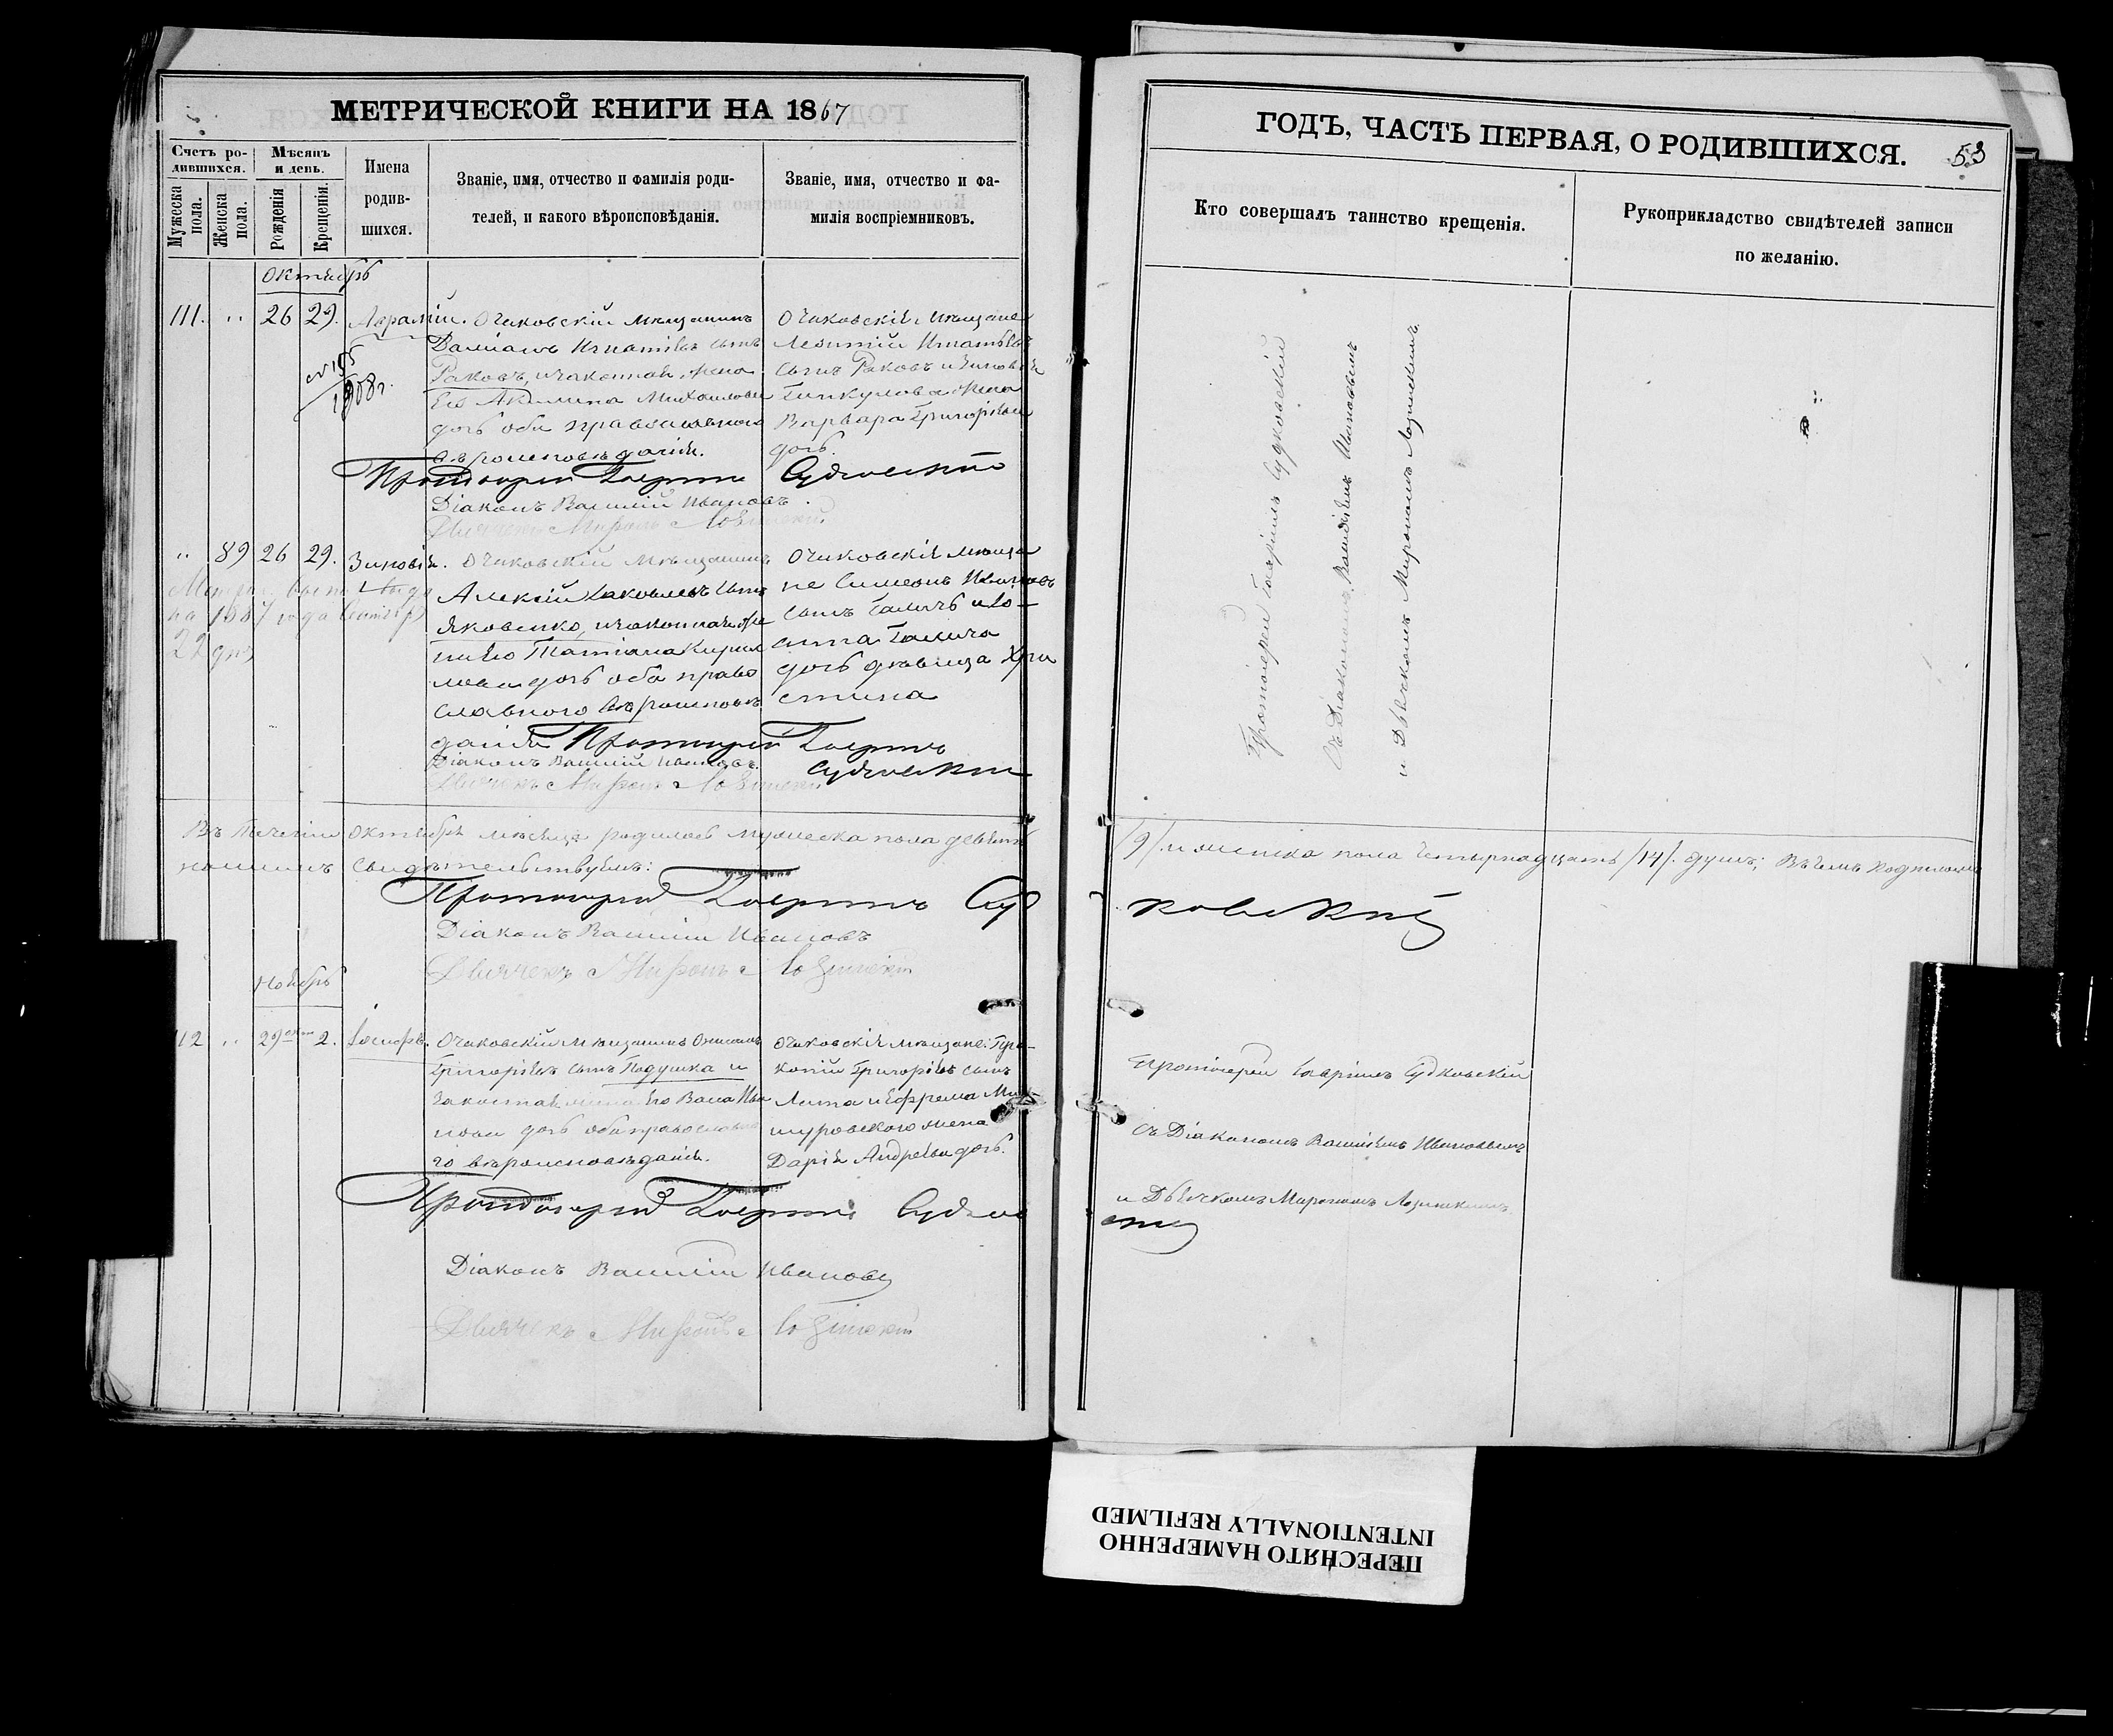 МЕТРИЧЕСКОЙ КНИГИ НА 1867
Счетъ ро-
дившихся.
Мужеска пола.
Женска пола.
Мѣсяцъ
и день.
Рожденія
Крещенія.
Имена
родив-
шихся.
Званіе, имя, отчество и фамилія роди-
телей, и какого вѣроисповѣданія.
Званіе, имя, отчество и фа-
милія воспріемниковъ.
Октябрь
111. " 26 29.
Очаковскій мѣщанинъ
Даміанъ Игнатіевъ сынъ
Раковъ, и законная жена
Его Акилина Михаилова
дочь оба православнаго
вѣроисповѣданія.
1908 г.
Очаковскіе мѣщане
Леонтій Игнатьевъ
сынъ Раковъ и Зиновія
жена
Варвара Григоріева
дочь.
Протоіерей Гавріилъ Судковскій
Діаконъ Василій Ивановъ.
Дьячекъ Миронъ Лозинскій.
" 89 26 29. Зиновія.
Очаковскій мѣщанинъ
Алексій Яковлевъ сынъ
Яковенко, и законная же
на Его Татіана Кирил
лова дочь оба право
славнаго вѣроисповѣ
данія
Очаковскіе мѣща
не Симеонъ Ивановъ
сынъ Галичъ и Іо-
анна Галича
дочь дѣвица Хри
стина
на 1887 года
22 дня
Протоіерей Гавріилъ
Судковскій
Діаконъ Василій Ивановъ.
Дьячекъ Миронъ Лозинскій
Въ теченіи Октября мѣсяца родилось мужеска пола девять
нашимъ свидѣтельствуемъ:
Протоіерей Гавріилъ Суд
Діаконъ Василій Ивановъ
Дьячекъ Миронъ Лозинскій
Ноябрь
112 " 29 окт 2. Іосифъ.
Очаковскій мѣщанинъ Онисимъ
Григоріевъ сынъ Подушка и
законная жена Его Васса Ива
нова дочь оба православна
го вѣроисповѣданія.
Очаковскіе мѣщане: Про-
копій Григоріевъ сынъ
Липа и Ефрема Ма
шуровскаго жена
Дарія Андреева дочь.
Протоіерей Гавріилъ Судков
Діаконъ Василій Ивановъ
Дьячекъ Миронъ Лозинскій
ГОДЪ, ЧАСТЬ ПЕРВАЯ, О РОДИВШИХСЯ.
53
Кто совершалъ таинство крещенія.
Рукоприкладство свидѣтелей записи
по желанію.
Протоіерей Гавріилъ Судковскій
Съ Діакономъ Василіемъ Ивановымъ
и Дьячкомъ Мирономъ Лозинскимъ.
/9/. и женска пола четырнадцать /14/. душъ; въ чемъ подписомъ
ковскій
Протоіерей Гавріилъ Судковскій
съ Діакономъ Василіемъ Ивановымъ
и Дьячкомъ Мирономъ Лозинскимъ.
скій
ПЕРЕСНЯТО НАМЕРЕННО
INTENTIONALLY REFILMED